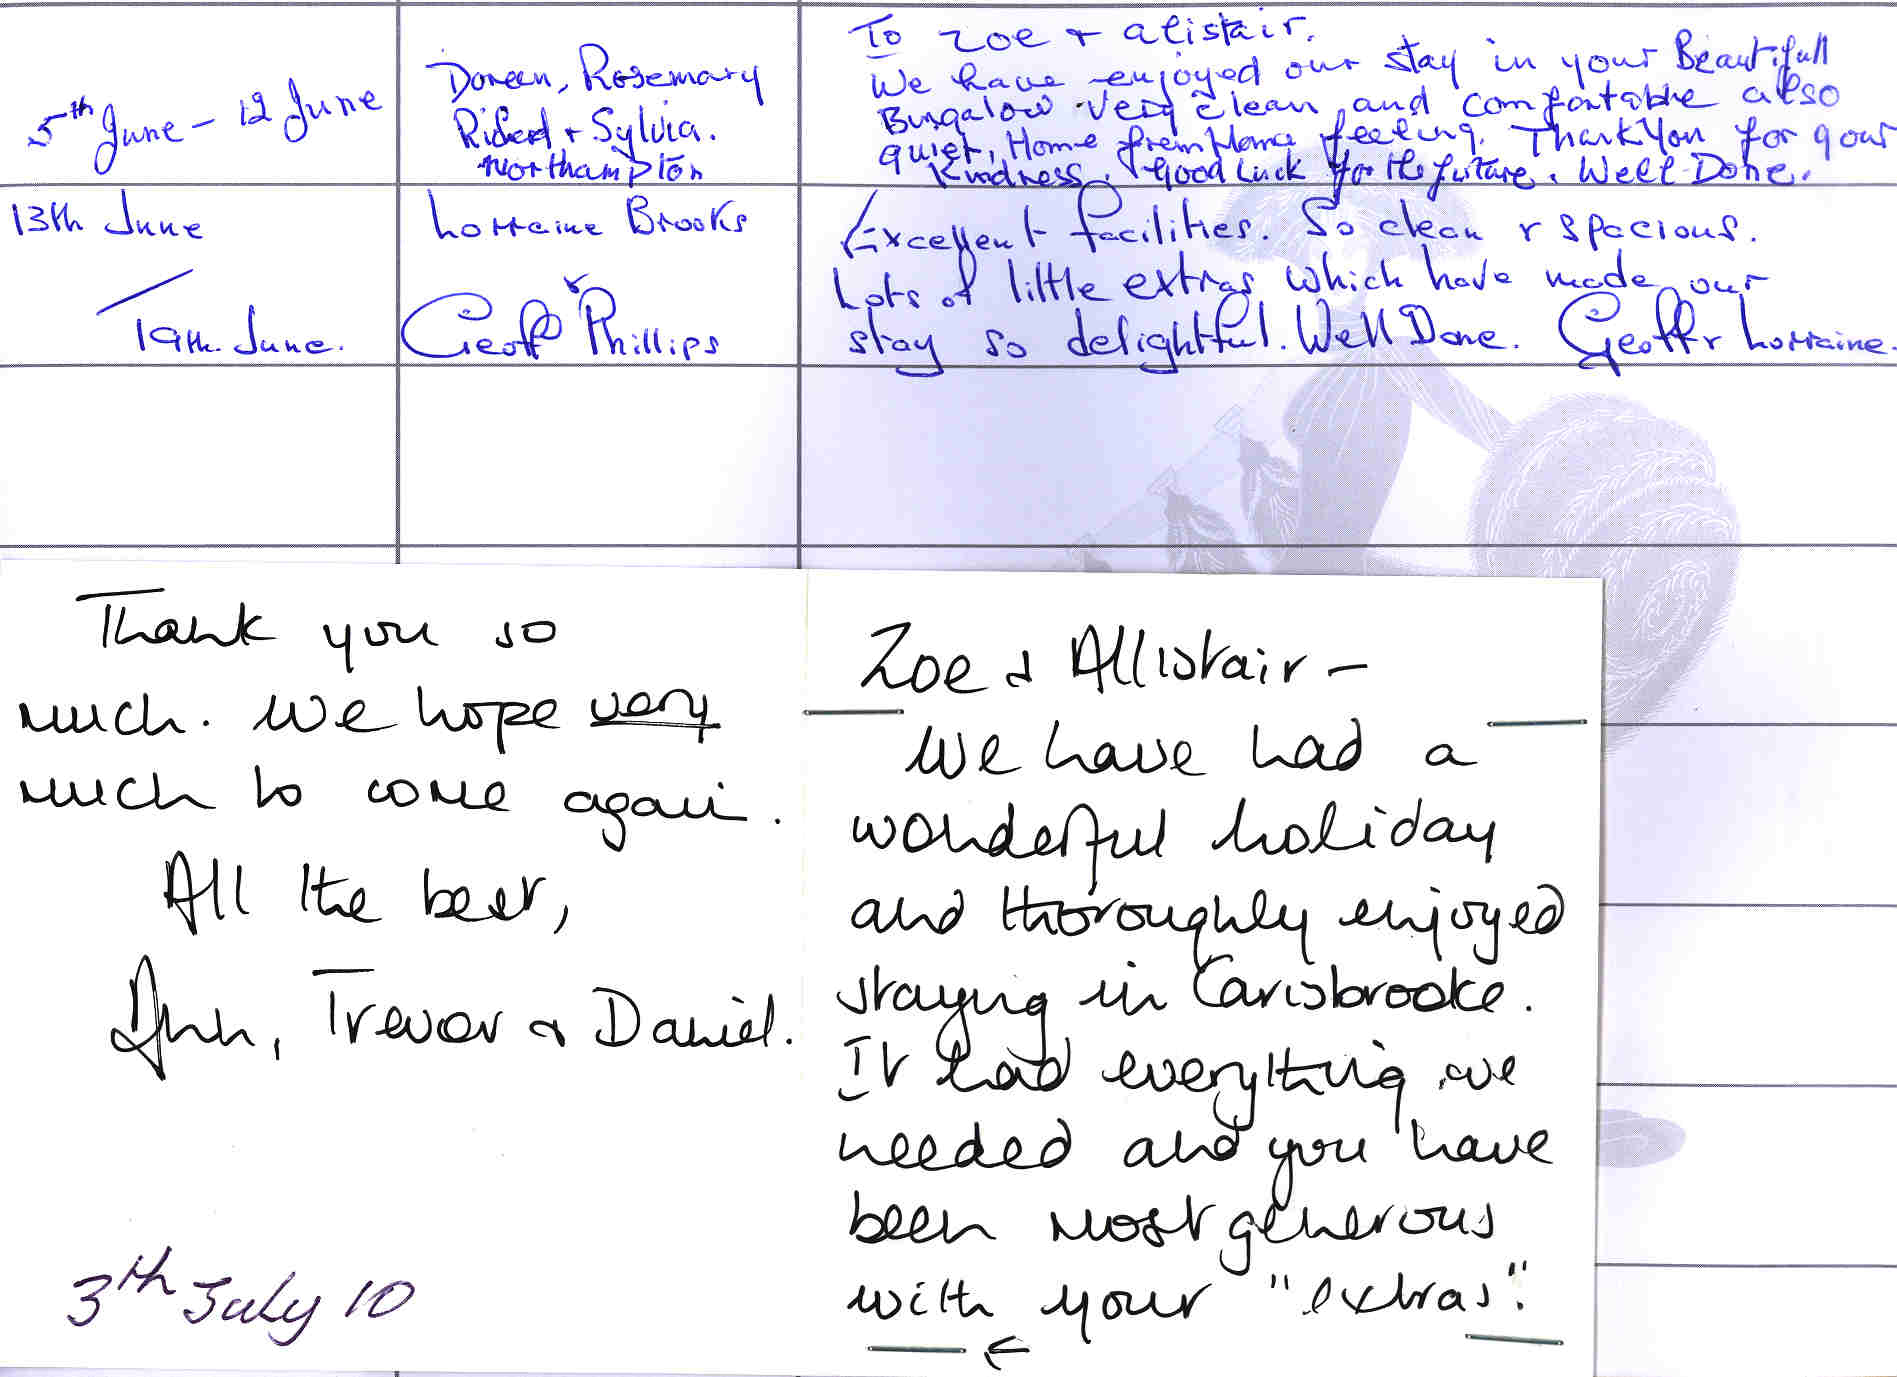 5th June - 12 June
Doreen, Rosemary
Richard + Sylvia.
Northampton
To Zoe + alistair.
We have enjoyed our stay in your Beautifull
Bungalow very clean and comfortable also
quiet, Home from Home feeling. Thank You for your
Kindness. Good Luck for the future. Well Done.
13th June
19th June.
Lorraine Brooks
&
Geoff Phillips
Excellent facilities. So clean & spacious.
Lots of little extras which have made our
stay so delightful. Well Done. Geoff & Lorraine.
Thank you so
much. We hope very
much to come again.
All the best,
Ann, Trevor & Daniel.
3th July 10
Zoe & Allistair -
We have had a
wonderful holiday
and thoroughly enjoyed
staying in Carisbrooke.
It had everything we
needed and you have
been most generous
with your "extras".
←